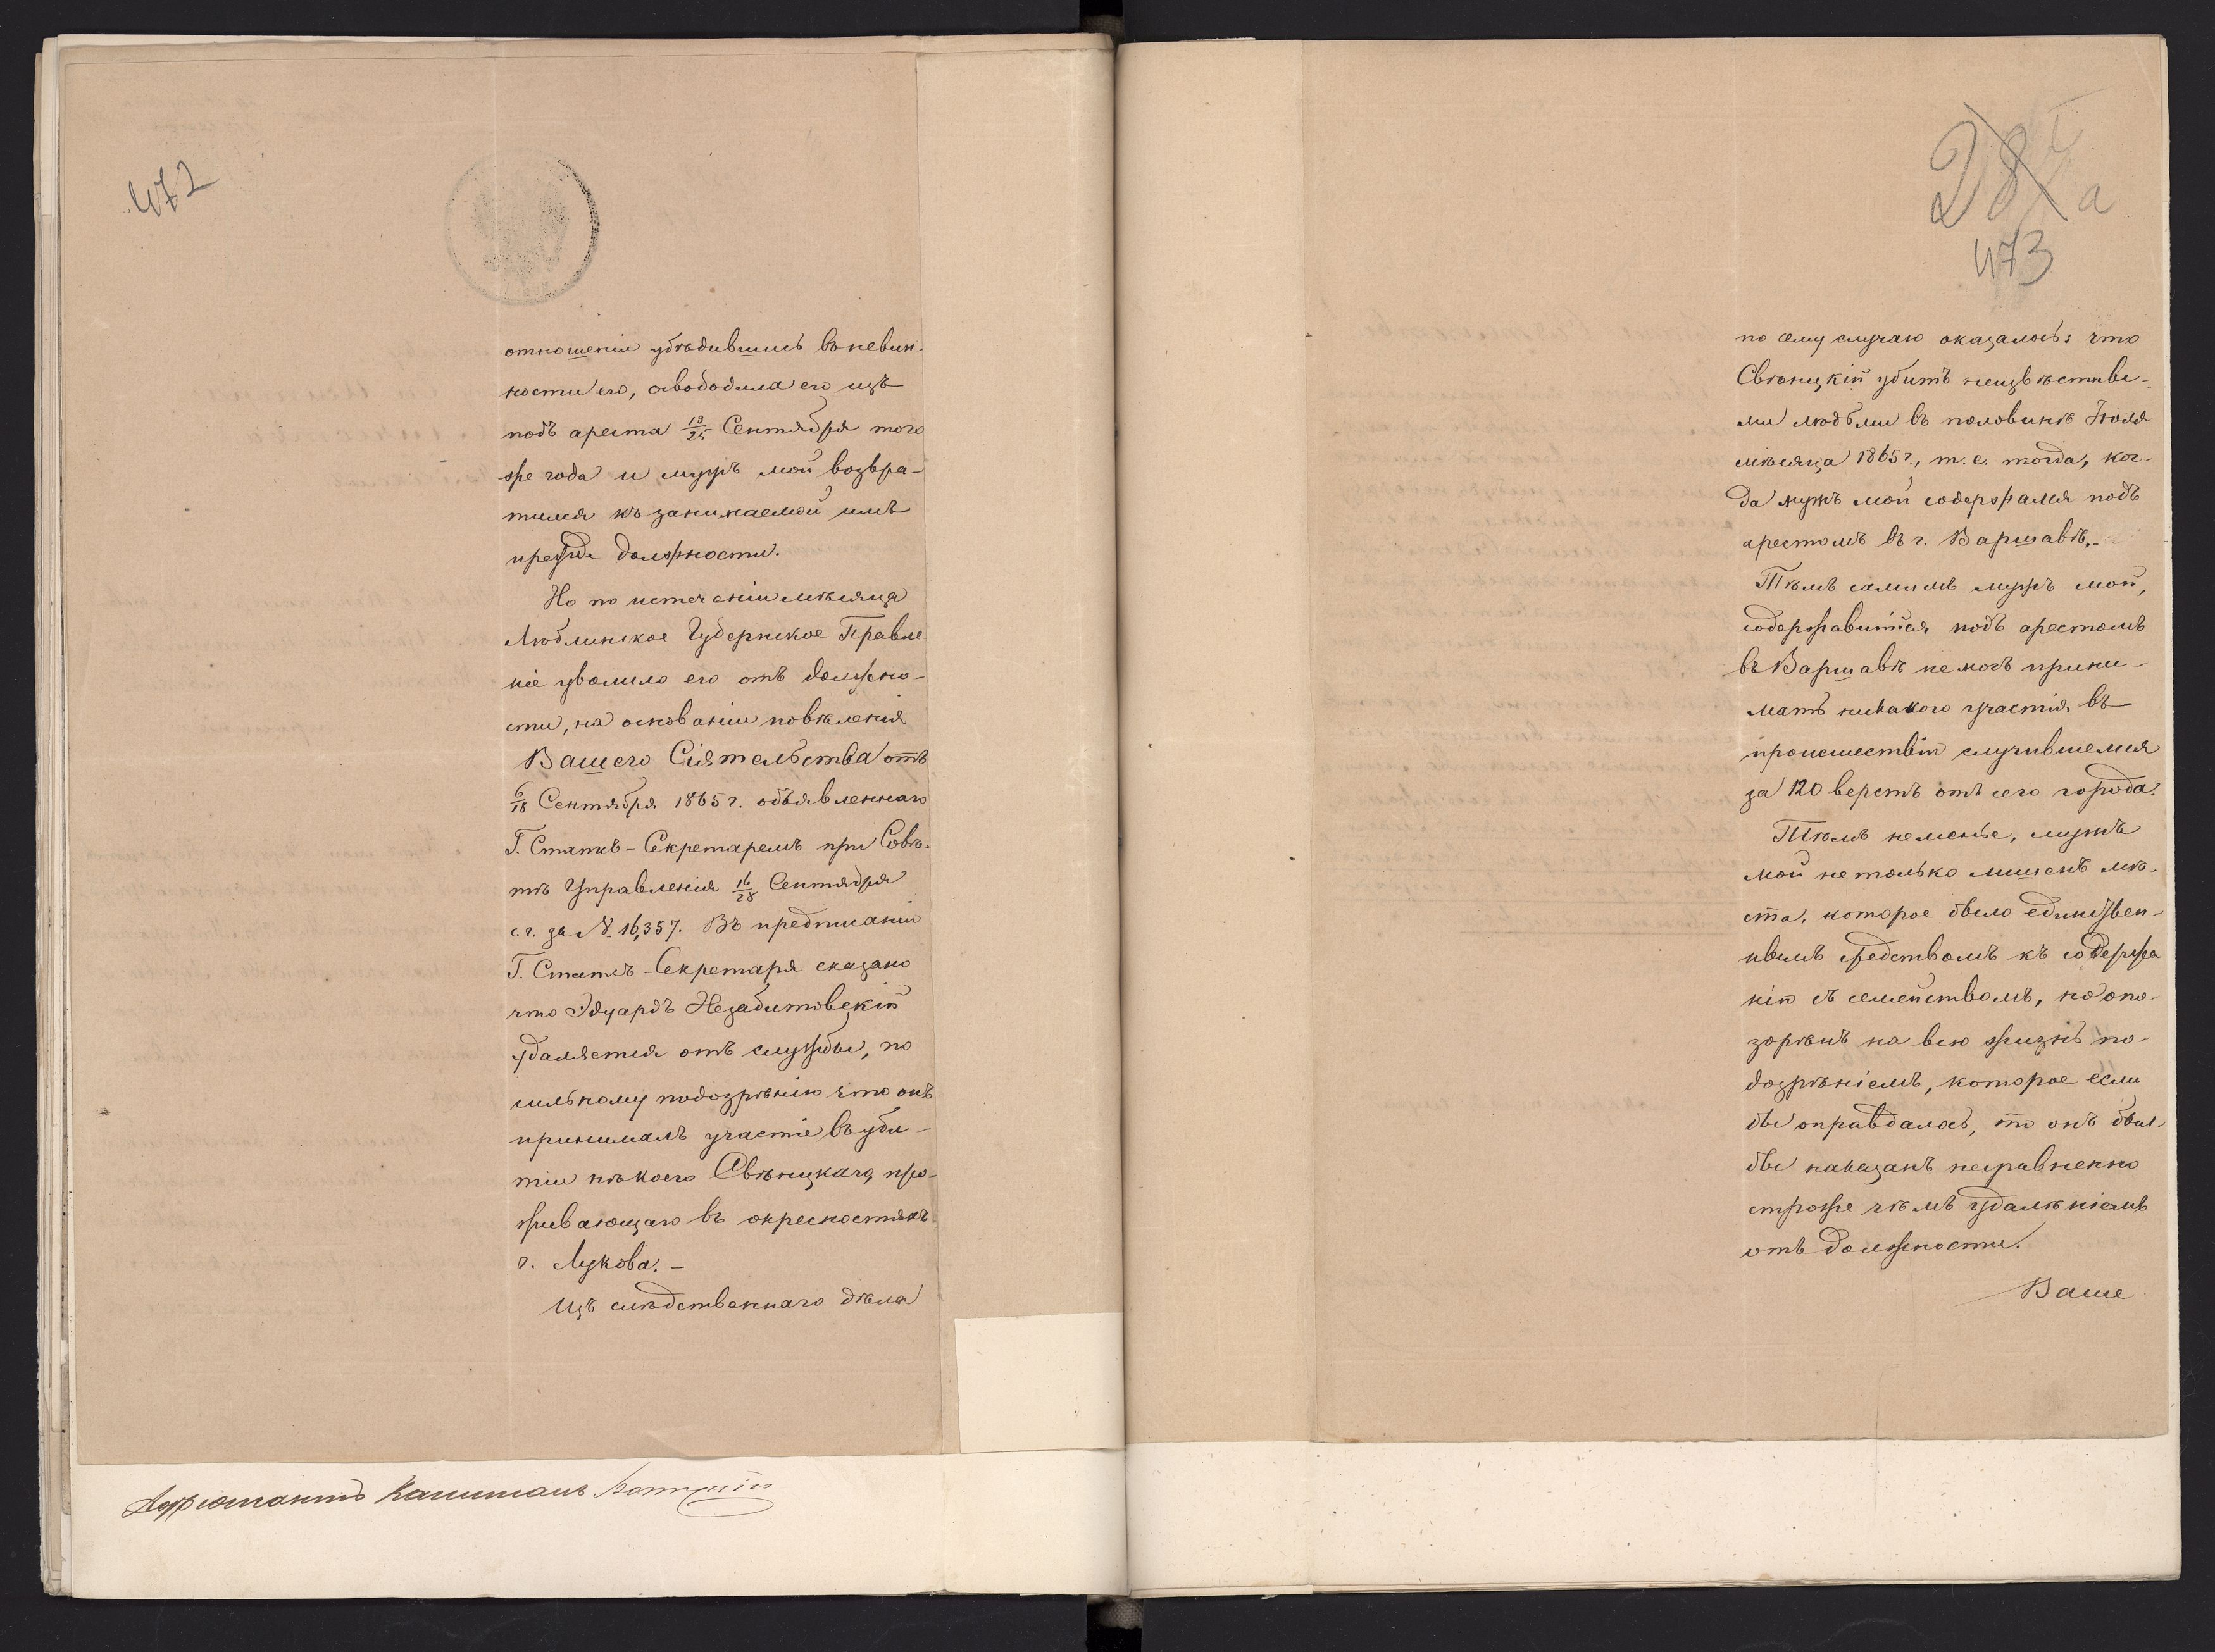 472
отношеніи убѣдившись въ невин-
ности его, освободила его изъ
подъ ареста 13/25 Сентября того
же года и мужъ мой возвра-
тился къ занимаемой имъ
прежде должности.
Но по истеченіи мѣсяца
Люблинское Губернское Правле
ніе уволило его отъ должно-
сти, на основаніи повѣленія
Вашего Сіятельства отъ
6/18 Сентября 1865 г. объявленнаго
Г. Статсъ-Секретаремъ при Совѣ-
тѣ Управленія 16/28 Сентября
с. г. за №. 16,357. Въ предписаніи
Г. Статсъ-Секретаря сказано
что Эдуардъ Незабитовскій
удаляется отъ службы, по
сильному подозрѣнію что онъ
принималъ участіе въ уби-
тіи нѣкоего Свѣнцкаго, про-
живающаго въ окресностяхъ
г. Лукова. –
Изъ слѣдственнаго дѣла
Адъютантъ Капитанъ
287 а
473
по сему случаю оказалось: что
Свѣнцкій убитъ неизвѣстны-
ми людьми въ половинѣ Іюля
мѣсяца 1865 г., т. е. тогда, ког-
да мужъ мой содержался подъ
арестомъ въ г. Варшавѣ. –
Тѣмъ самымъ мужъ мой,
содержавшійся подъ арестомъ
въ Варшавѣ не могъ прини-
мать никакого участія въ
происшествіи случившемся
за 120 верстъ отъ сего города.
Тѣмъ неменѣе, мужъ
мой не только лишенъ мѣ-
ста, которое было единствен-
нымъ средствомъ къ содержа
нію съ семействомъ, но опо-
зорѣнъ на всю жизнь по-
дозрѣніемъ, которое если
бы оправдалось, то онъ былъ
бы наказанъ несравненно
строже чѣмъ удалѣніемъ
отъ должности.
Ваше